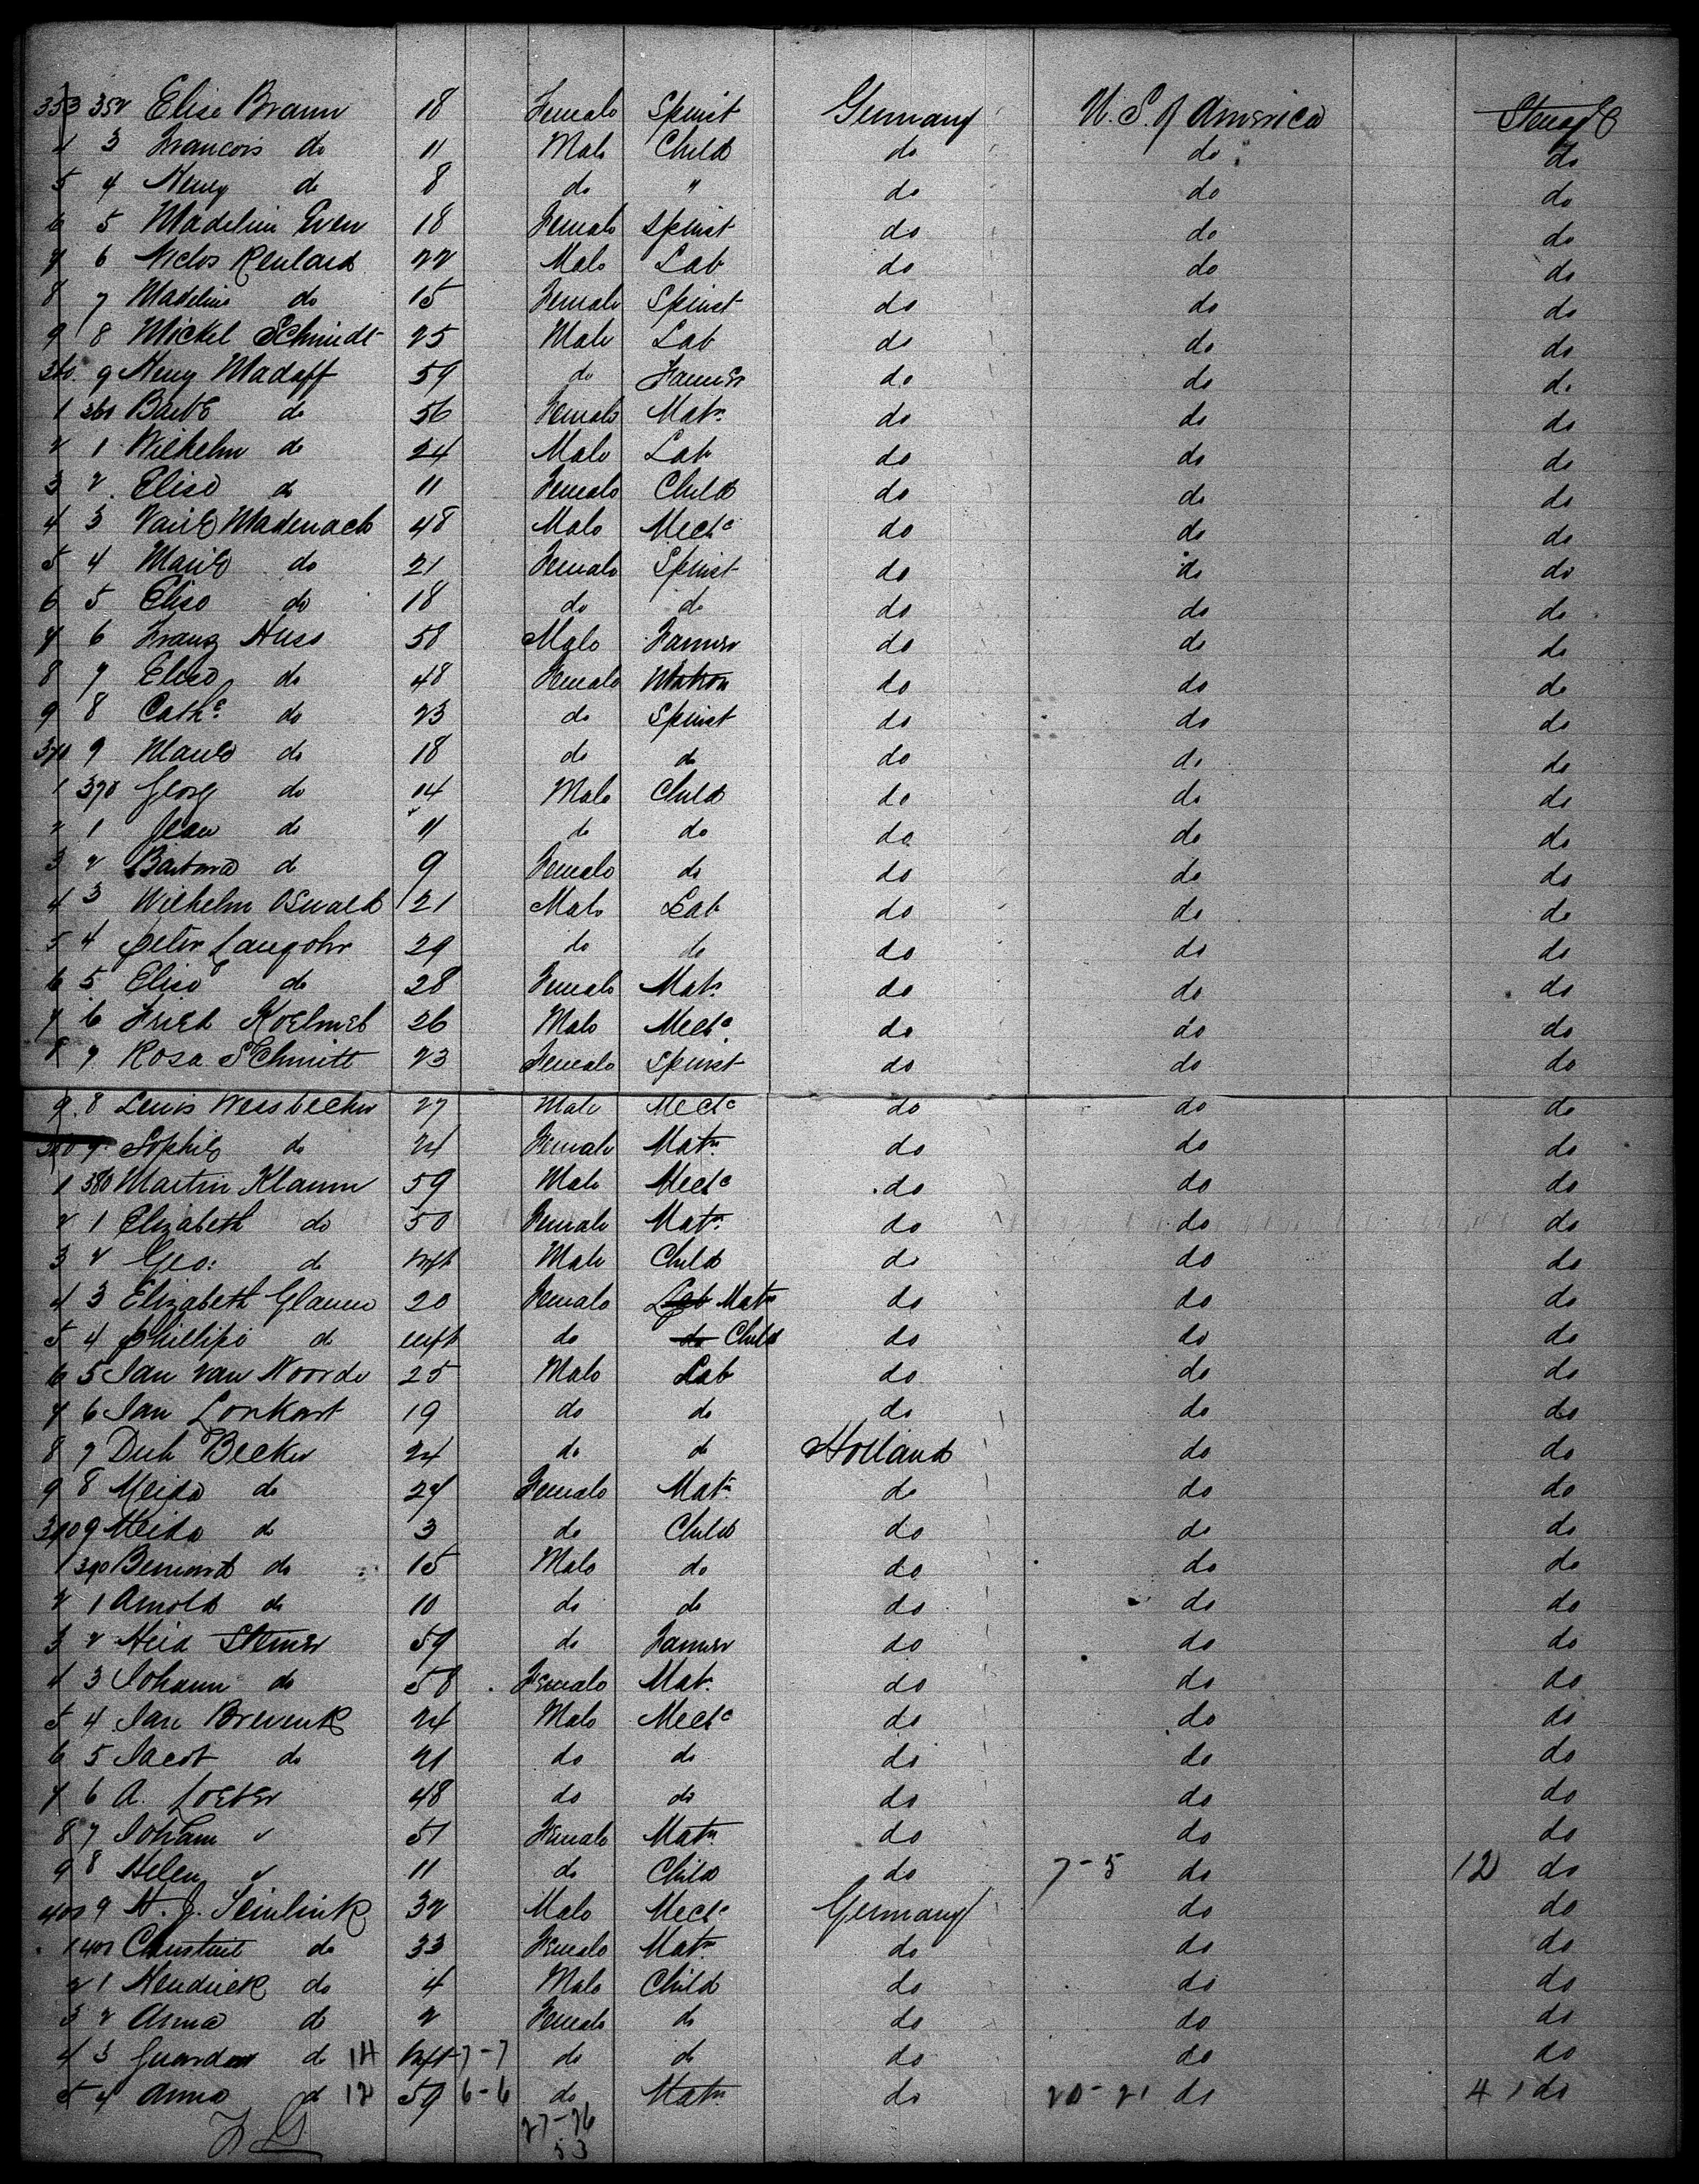 353 352 Elise Braun 18 Female Spinst Germany U.S. of America Steerage
4 3 Francois do 11 Male Child do do do
5 4 Henry do 8 do " do do do
6 5 Madeline Even 18 Female Spinst do do do
7 6 Niclos Renlard 22 Male Lab do do do
8 7 Madeline do 15 Female Spinst do do do
9 8 Mickel Schmidt 25 Male Lab do do do
360 9 Henry Madaff 59 do Farmer do do do
1 360 Barbe do 56 Female Matn do do do
2 1 Wilhelm do 24 Male Lab do do do
3 2 Elise do 11 Female Child do do do
4 3 Madenach 48 Male Mechc do do do
5 4 Marie do 21 Female Spinst do do do
6 5 Elise do 18 do do do do do
7 6 Franz Huss 58 Male Farmer do do do
8 7 Elise do 48 Female Matron do do do
9 8 Cathe do 23 do Spinst do do do
370 9 Marie do 18 do do do do do
1 370 Georg do 14 Male Child do do do
2 1 Jean do 11 do do do do do
3 2 Barbara do 9 Female do do do do
4 3 Wilhelm Oswald 21 Male Lab do do do
5 4 Peter Langohr 29 do do do do do
6 5 Elise do 28 Female Matn do do do
7 6 Fried Koelmel 26 Male Mechc do do do
8 7 Rosa Schmitt 23 Female Spinst do do do
9 8 Lewis Weisbecker 27 Male Mechc do do do
380 9 Sophie do 24 Female Matn do do do
1 380 Martin Klamm 59 Male Mechc do do do
2 1 Elizabeth do 50 Female Matn do do do
3 2 Geo: do Inft Male Child do do do
4 3 Elizabeth Glamm 20 Female Lab Matn do do do
5 4 Phillipe do Inft do do Child do do do
6 5 Jan van Noorde 25 Male Lab do do do
7 6 Jan Lonkart 19 do do do do do
8 7 Derk Becker 24 do do Holland do do
9 8 Meida do 27 Female Matn do do do
390 9 Meida do 3 do Child do do do
1 390 Bernard do 15 Male do do do do
2 1 Arnold do 10 do do do do do
3 2 Heid Stemer 59 do Farmer do do do
4 3 Johann do 58 Female Mat. do do do
5 4 Jan Brevenk 24 Male Mechc do do do
6 5 Jacob do 21 do do do do do
7 6 A. Loeber 48 do do do do do
8 7 Johann " 51 Female Matn do do do
9 8 Helen " 11 do Child do 7-5 do 12 do
400 9 H. J. Seinlink 32 Male Mechc Germany do do
1 400 Christine do 33 Female Matn do do do
2 1 Hendrick do 4 Male Child do do do
3 2 Anna do 2 Female do do do do
4 3 do 14 Inft 7-7 do do do do do
5 4 Anna do 12 59 6-6 do Matn do 20-21 do 4 1 do
27-26
53